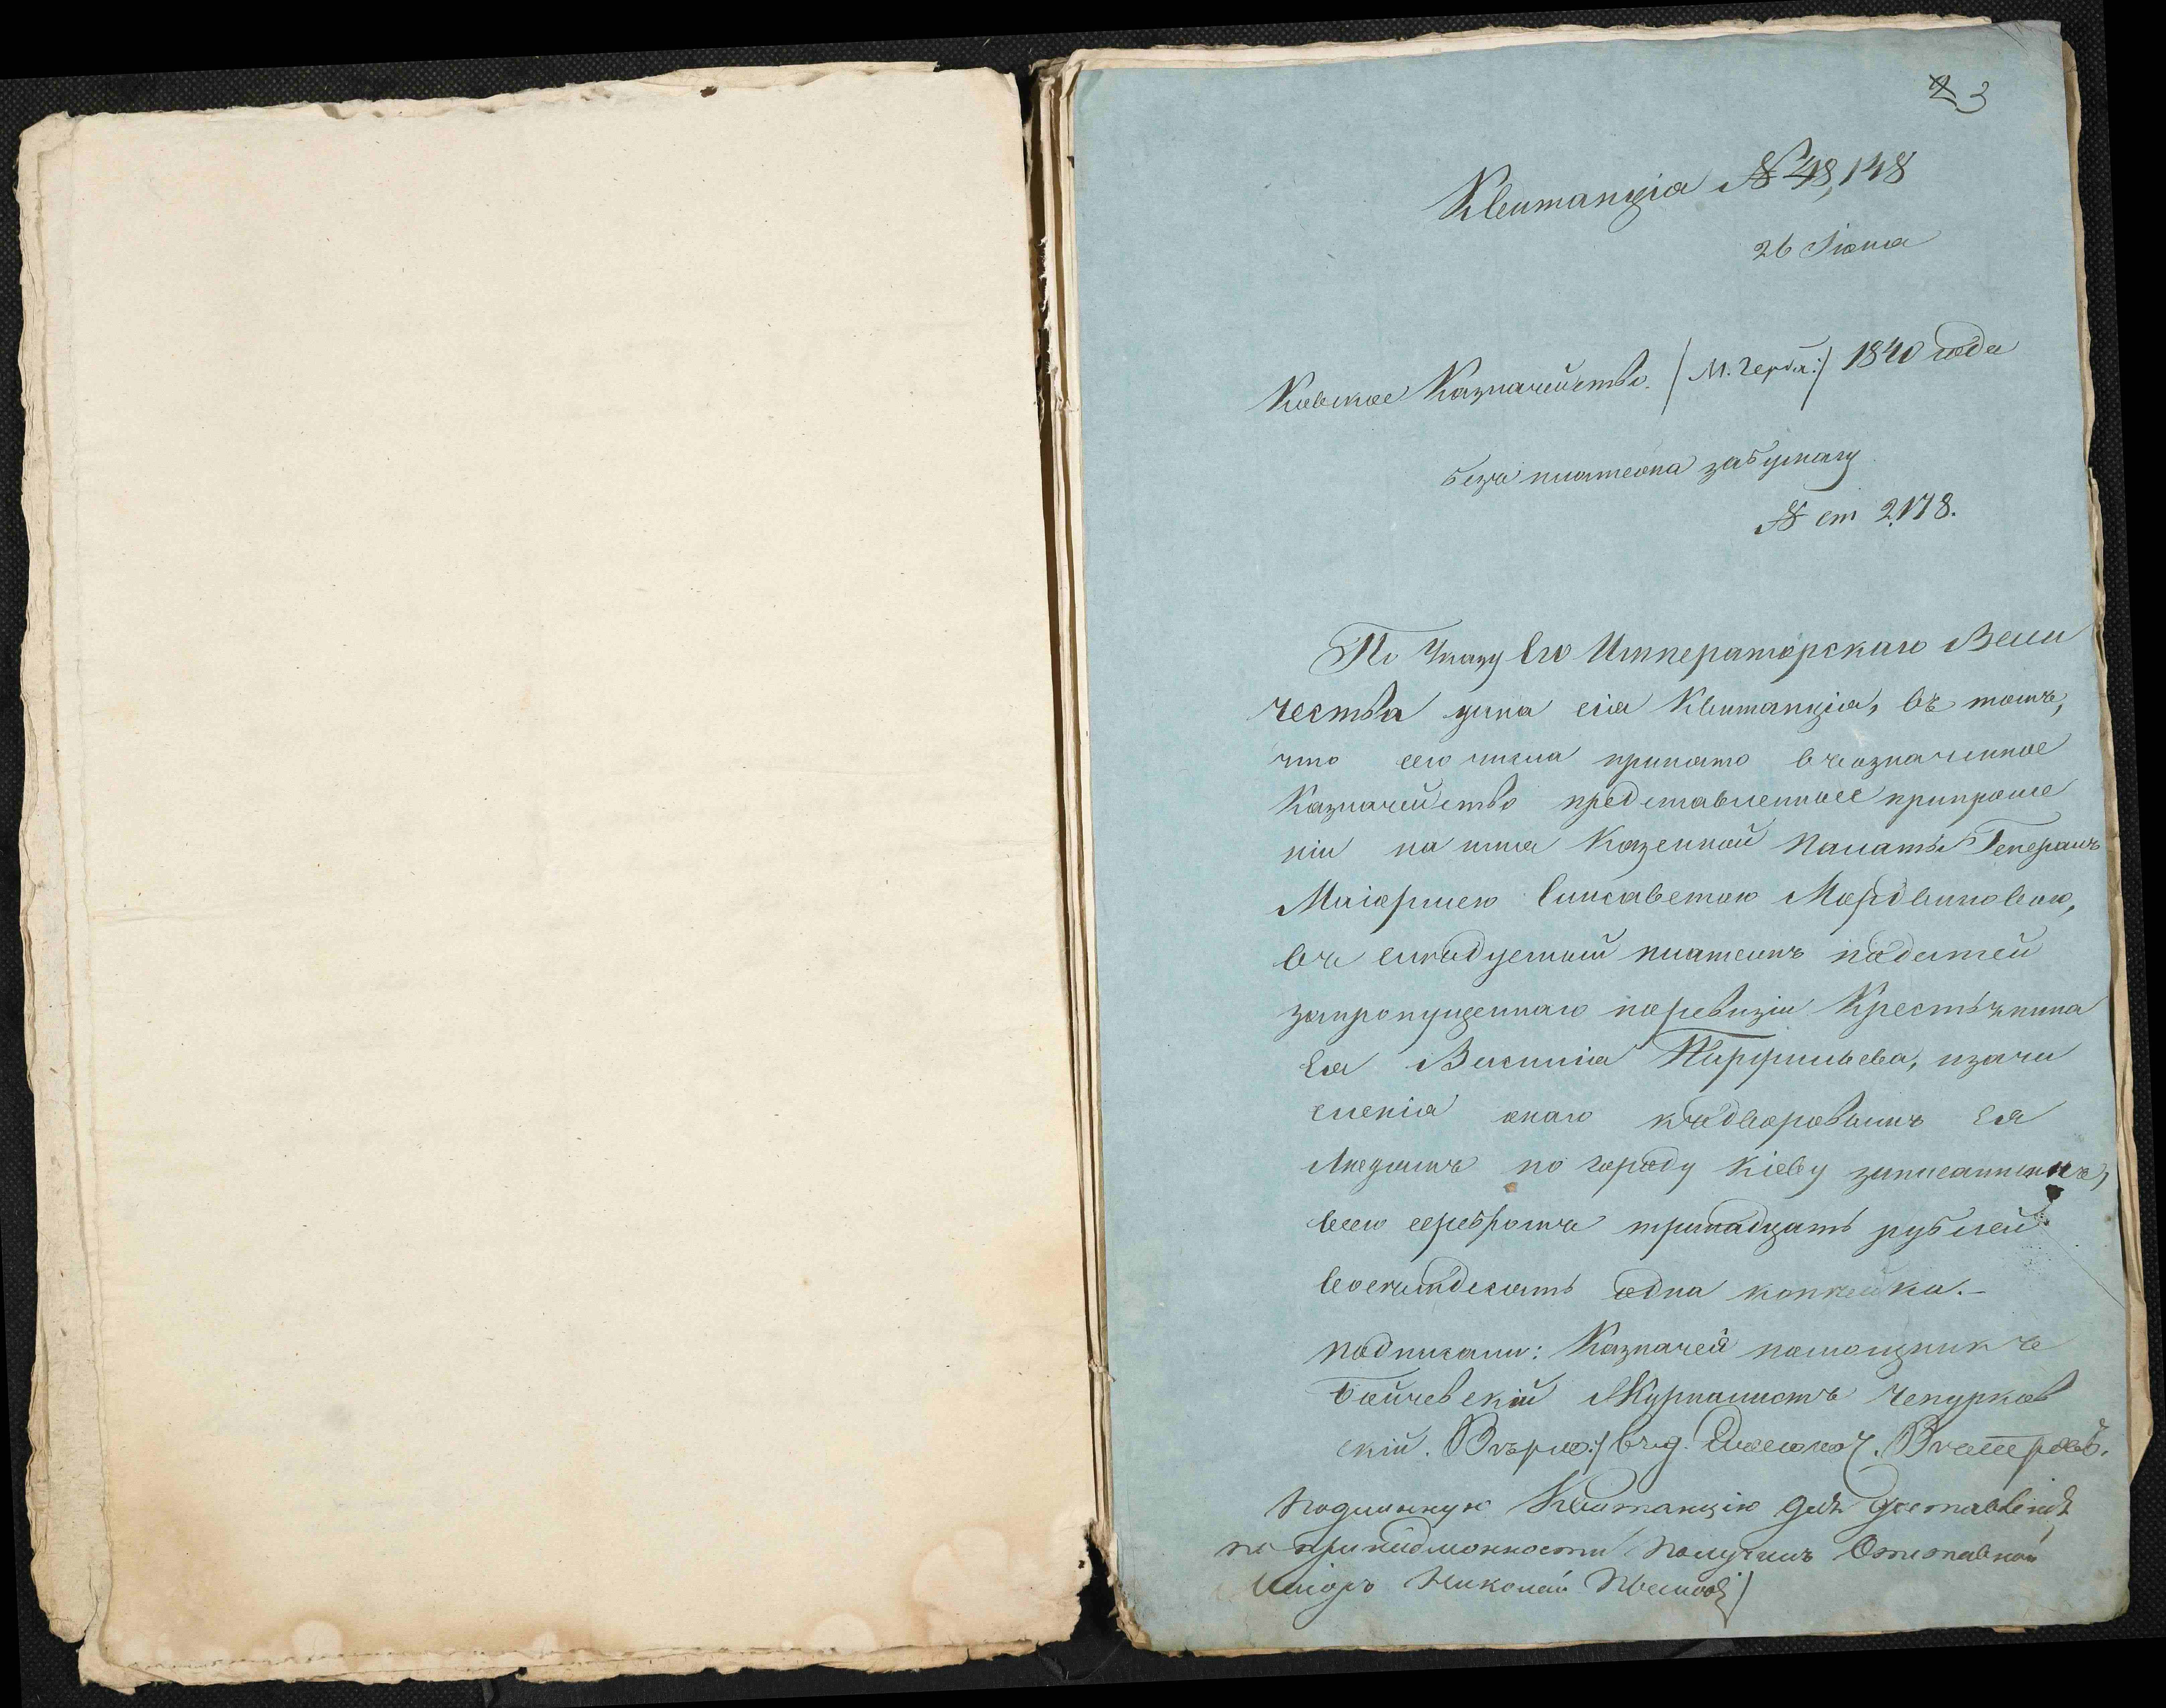 3
Квитанція № 48,148
26 Іюня
Кіевское Казначейство. / М. Герба: / 1840 года
безъ платежа за бумагу
№ ст 2,178.
По Указу Его Императорскаго Вели
чества дана сія Квитанція, въ томъ,
что сего числа принято въ означенное
Казначейство представленное при проше
ніи на имя Казенной Палаты Генералъ
Маіоршею Елисаветою Мордвиновою,
въ слѣдуемый платежъ податей
за пропущеннаго по ревизіи Крестьянина
Ея Василія Парфильева, и зачи
сленія онаго къ дворовымъ Ея
Людямъ по городу Кіеву записаннымъ,
всего серебромъ тринадцать рублей
восемдесятъ одна копѣйка.-
подписали: Казначея помощникъ
Журналистъ Чепурков
скій. Вѣрно:/
Подлинную Квитанцію для доставленія
по принадлежности получилъ Отставной
Маіоръ Николай